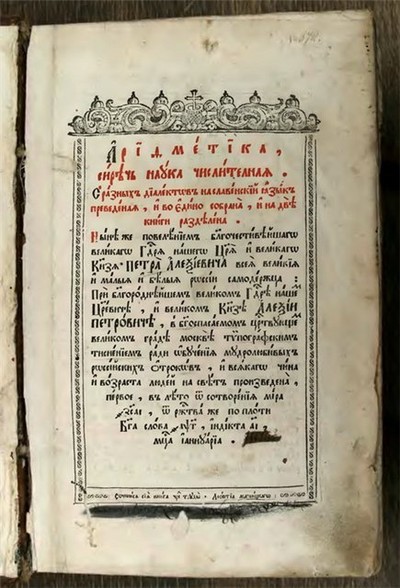 Аріѳметіка,
сирѣчь наука числителная.
С разныхъ діалектѡвъ на славенскій ѧзыкъ
преведеная, и во едино собрана, и на двѣ
книги раздѣлена.
Нынѣ же повелѣніемъ благочестивѣйшагѡ
великагѡ гдⷭ҇рѧ нашегѡ цр҃ѧ и великагѡ
кнѧзѧ ПЕТРА АЛЕѮІЕВИЧА всеѧ великіѧ
и малыѧ и бѣлыѧ рѡссіи самодержца:
При благороднѣйшемъ великомъ гдⷭ҇рѣ нашемъ
цр҃евичѣ, и великомъ кнѧзѣ АЛЕѮІИ
ПЕТРОВИЧѢ, в бг҃оспасаемомъ црⷭ҇твующемъ
великомъ градѣ москвѣ тѵпографскимъ
тисненіемъ ради ѡбученіѧ мудролюбивыхъ
рѡссійскихъ ѻтрокѡвъ, и всѧкагѡ чина
и возраста людей на свѣтъ произведена,
первое, въ лѣто ѿ сотвореніѧ міра
҂зсаі, ѿ рждⷭ҇тва же по плоти
бг҃а слова ҂аѱг, індікта аі
мцⷭ҇а іаннуаріа.
Сочинисѧ сіѧ книга чрез труды